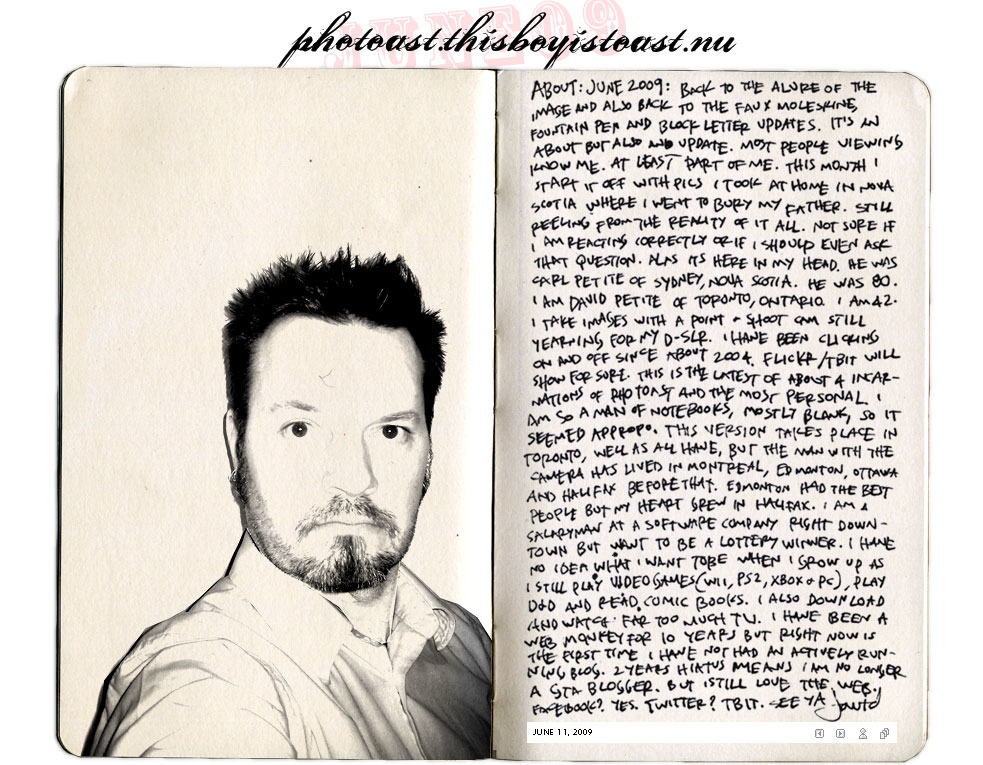 JUNE09
photoast.thisboyistoast.nu
ABOUT: JUNE 2009: BACK TO THE ALURE OF THE
IMAGE AND ALSO BACK TO THE FAUX MOLESKINE,
FOUNTAIN PEN AND BLOCK LETTER UPDATES. IT'S AN
ABOUT BUT ALSO AND UPDATE. MOST PEOPLE VIEWING
KNOW ME. AT LEAST PART OF ME. THIS MONTH I
START IT OFF WITH PICS I TOOK AT HOME IN NOVA
SCOTIA WHERE I WENT TO BURY MY FATHER. STILL
REELING FROM THE REALITY OF IT ALL. NOT SURE IF
I AM REACTING CORRECTLY OR IF I SHOULD EVEN ASK
THAT QUESTION. ALAS ITS HERE IN MY HEAD. HE WAS
CARL PETITE OF SYDNEY, NOVA SCOTIA. HE WAS 80.
I AM DAVID PETITE OF TORONTO, ONTARIO. I AM 42.
I TAKE IMAGES WITH A POINT + SHOOT CAM STILL
YEARNING FOR MY D-SLR. I HAVE BEEN CLICKING
ON AND OFF SINCE ABOUT 2004. FLICKR/TBIT WILL
SHOW FOR SURE. THIS IS THE LATEST OF ABOUT 4 INCAR-
NATIONS OF PHOTOAST AND THE MOST PERSONAL. I
AM SO A MAN OF NOTEBOOKS, MOSTLY BLANK, SO IT
SEEMED APPROPO. THIS VERSION TAKES PLACE IN
TORONTO, WELL AS ALL HAVE, BUT THE MAN WITH THE
CAMERA HAS LIVED IN MONTREAL, EDMONTON, OTTAWA
AND HALIFAX BEFORE THAT. EDMONTON HAD THE BEST
PEOPLE BUT MY HEART GREW IN HALIFAX. I AM A
SALARYMAN AT A SOFTWARE COMPANY RIGHT DOWN-
TOWN BUT WANT TO BE A LOTTERY WINNER. I HAVE
NO IDEA WHAT I WANT TO BE WHEN I GROW UP AS
I STILL PLAY VIDEOGAMES (WII, PS2, XBOX + PC), PLAY
D&D AND READ COMIC BOOKS. I ALSO DOWNLOAD
AND WATCH FAR TOO MUCH TV. I HAVE BEEN A
WEB MONKEY FOR 10 YEARS BUT RIGHT NOW IS
THE FIRST TIME I HAVE NOT HAD AN ACTIVELY RUN-
NING BLOG. 2 YEARS HIATUS MEANS I AM NO LONGER
A STA BLOGGER. BUT I STILL LOVE THE WEB.
FACEBOOK? YES. TWITTER? TBIT. SEE YA
JUNE 11, 2009